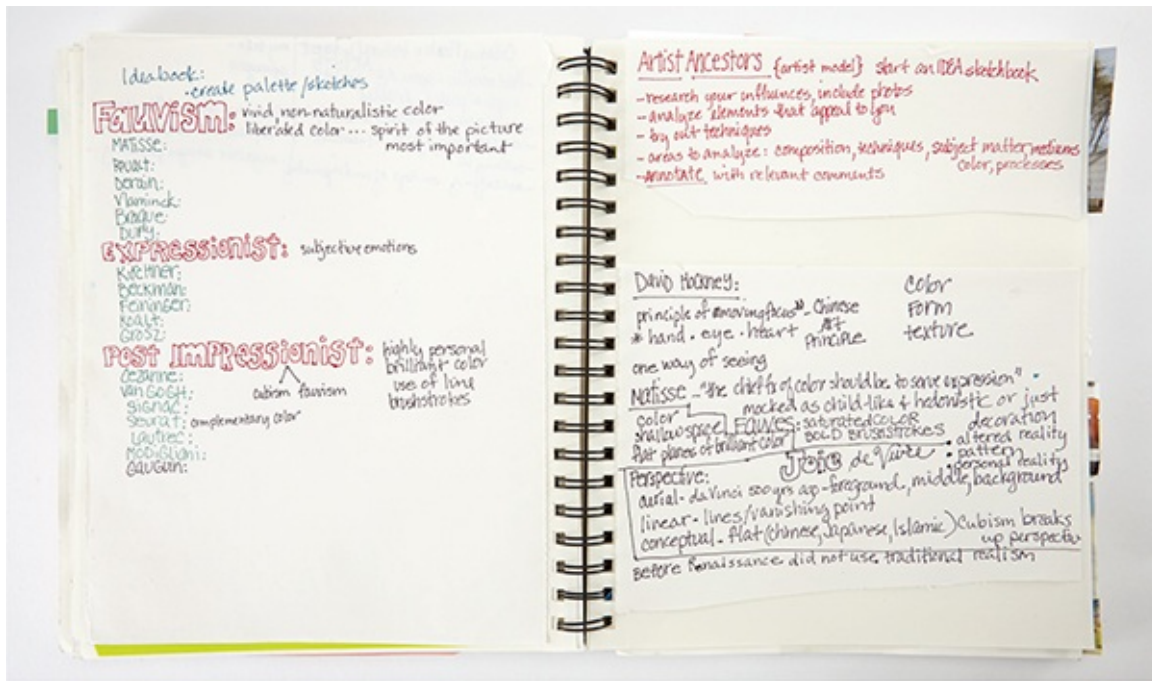 Ideabook:
• create palette/sketches
FAUVISM: vivid, non-naturalistic color
liberated color... spirit of the picture
most important
MATISSE:
Derain:
Vlaminck:
Braque:
Dufy:
EXPRESSIONIST: subjective emotions
Kirchner:
Beckman:
Feininger:
Grosz:
POST IMPRESSIONIST: highly personal
brilliant color
cubism fauvism use of line
brushstrokes
Cezanne:
Van GOGH:
Signac:
Seurat: complementary color
Lautrec:
MODIGLIANI:
GAUGUIN:
Artist Ancestors {artist model} start an IDEA sketchbook
- research your influences, include photos
- analyze elements that appeal to you
- try out techniques
- areas to analyze: composition, techniques, subject matter, mediums
color, processes
- annotate with relevant comments
David Hockney:
principle of "moving focus" - Chinese
Art
Principle
* hand • eye • heart
color
Form
texture
one way of seeing
Matisse - "the chief fx of color should be to serve expression"
mocked as child-like & hedonistic or just
decoration
color
shallow space
flat planes of brilliant color
FAUVES: saturated COLOR
BOLD BRUSHSTROKES
• altered reality
• pattern
• personal reality
Joie de Vivre
Perspective:
aerial - da Vinci 500 yrs ago - foreground, middle, background
linear - lines/vanishing point
conceptual - flat (Chinese, Japanese, Islamic) Cubism breaks
up perspective
Before Renaissance did not use traditional realism